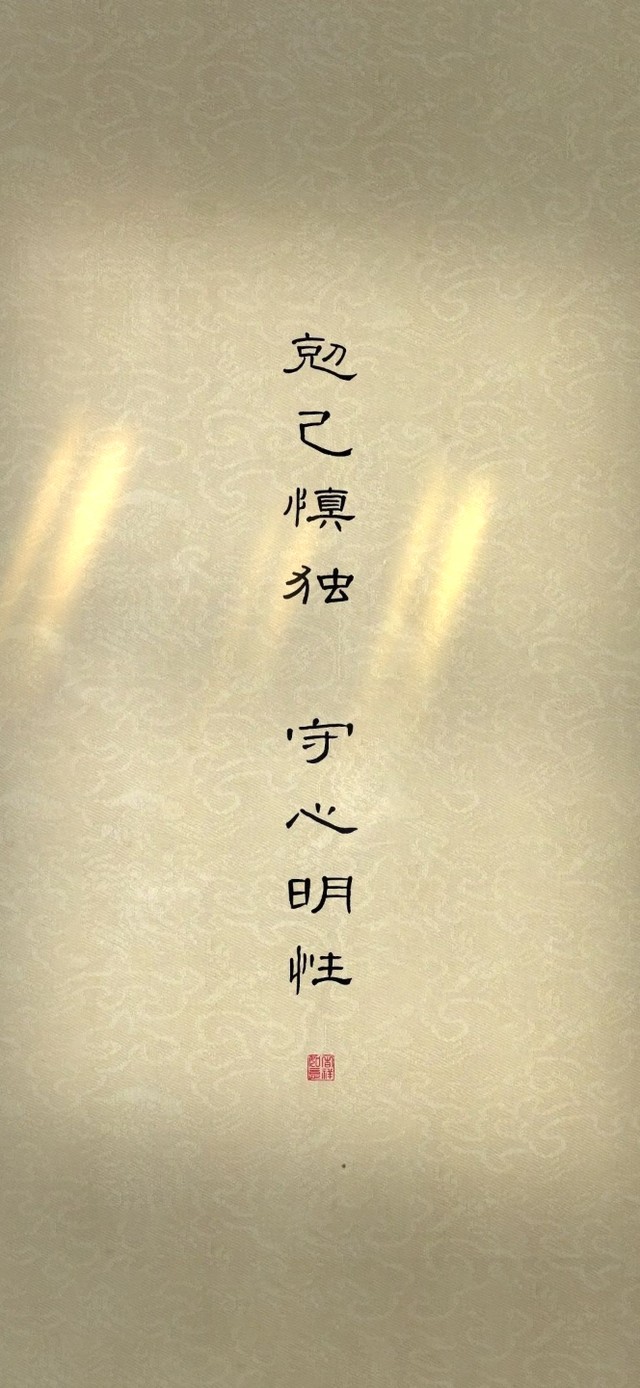 勊己慎独 守心明性